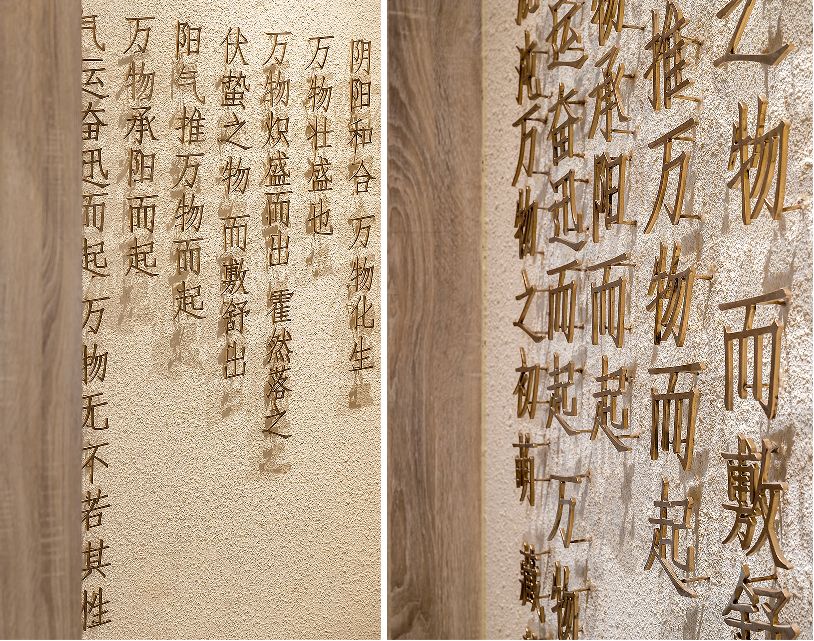 阴阳和合 万物化生
万物壮盛也
万物炽盛而出 霍然落之
伏蛰之物 而敷舒出
阳气推万物而起
万物承阳而起
气运奋迅而起 万物无不若其性
之物 而敷舒
推万物而起
物承阳而起
运奋迅而起 万物
万物之初萌 藏